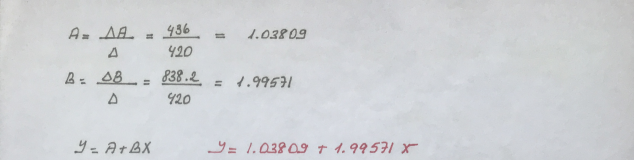 A = ΔA/Δ = 436/420 = 1.03809
B = ΔB/Δ = 838.2/420 = 1.99571
Y = A + BX Y = 1.03809 + 1.99571 X